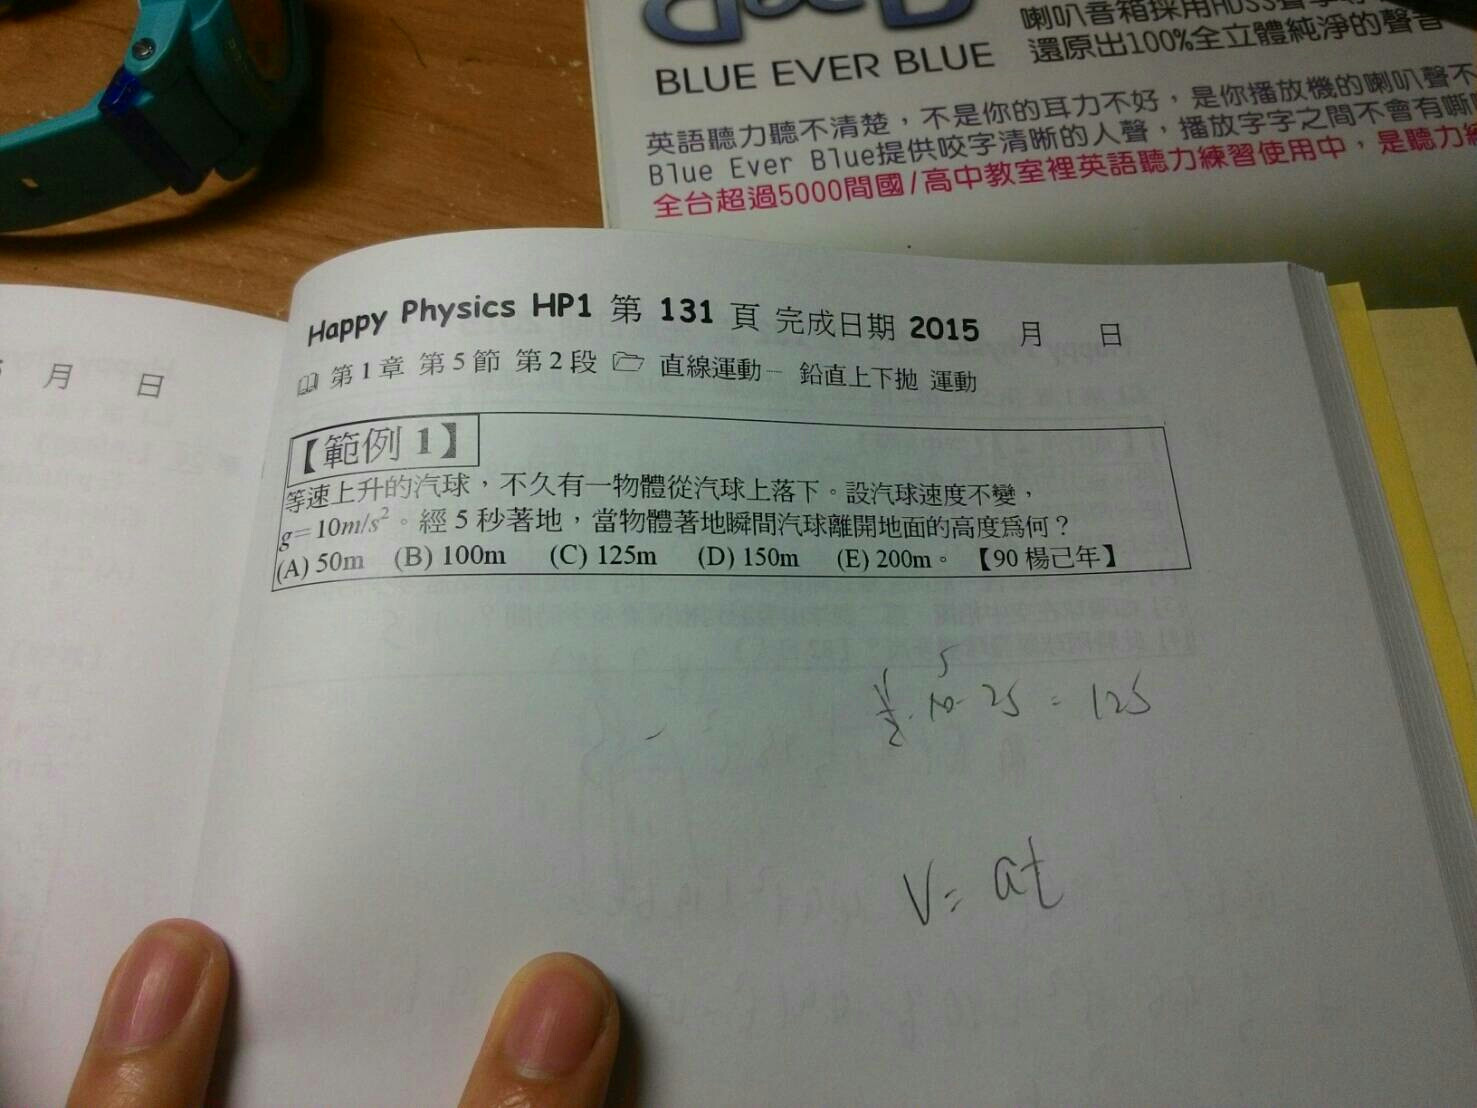 喇叭音箱採用HDSS聲學
還原出100%全立體純淨的聲音
BLUE EVER BLUE
英語聽力聽不清楚，不是你的耳力不好，是你播放機的喇叭聲不
Blue Ever Blue提供咬字清晰的人聲，播放字字之間不會有嘶
全台超過5000間國/高中教室裡英語聽力練習使用中，是聽力練
月 日
Happy Physics HP1 第 131 頁 完成日期 2015 月 日
第1章 第5節 第2段 直線運動－ 鉛直上下拋 運動
【範例 1】
等速上升的汽球，不久有一物體從汽球上落下。設汽球速度不變，
g=10m/s²。經 5 秒著地，當物體著地瞬間汽球離開地面的高度為何？
(A) 50m (B) 100m (C) 125m (D) 150m (E) 200m。 【90 楊己年】
5
1/2·10·25=125
V=at